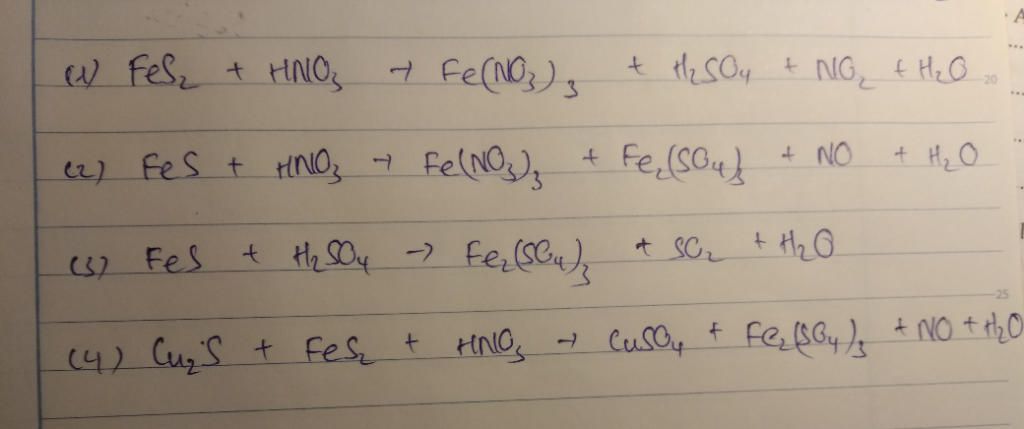 (1) FeS₂ + HNO₃ → Fe(NO₃)₃ + H₂SO₄ + NO₂ + H₂O
20
(2) FeS + HNO₃ → Fe(NO₃)₃ + Fe₂(SO₄)₃ + NO + H₂O
(3) FeS + H₂SO₄ → Fe₂(SO₄)₃ + SO₂ + H₂O
25
(4) Cu₂S + FeS₂ + HNO₃ → CuSO₄ + Fe₂(SO₄)₃ + NO + H₂O